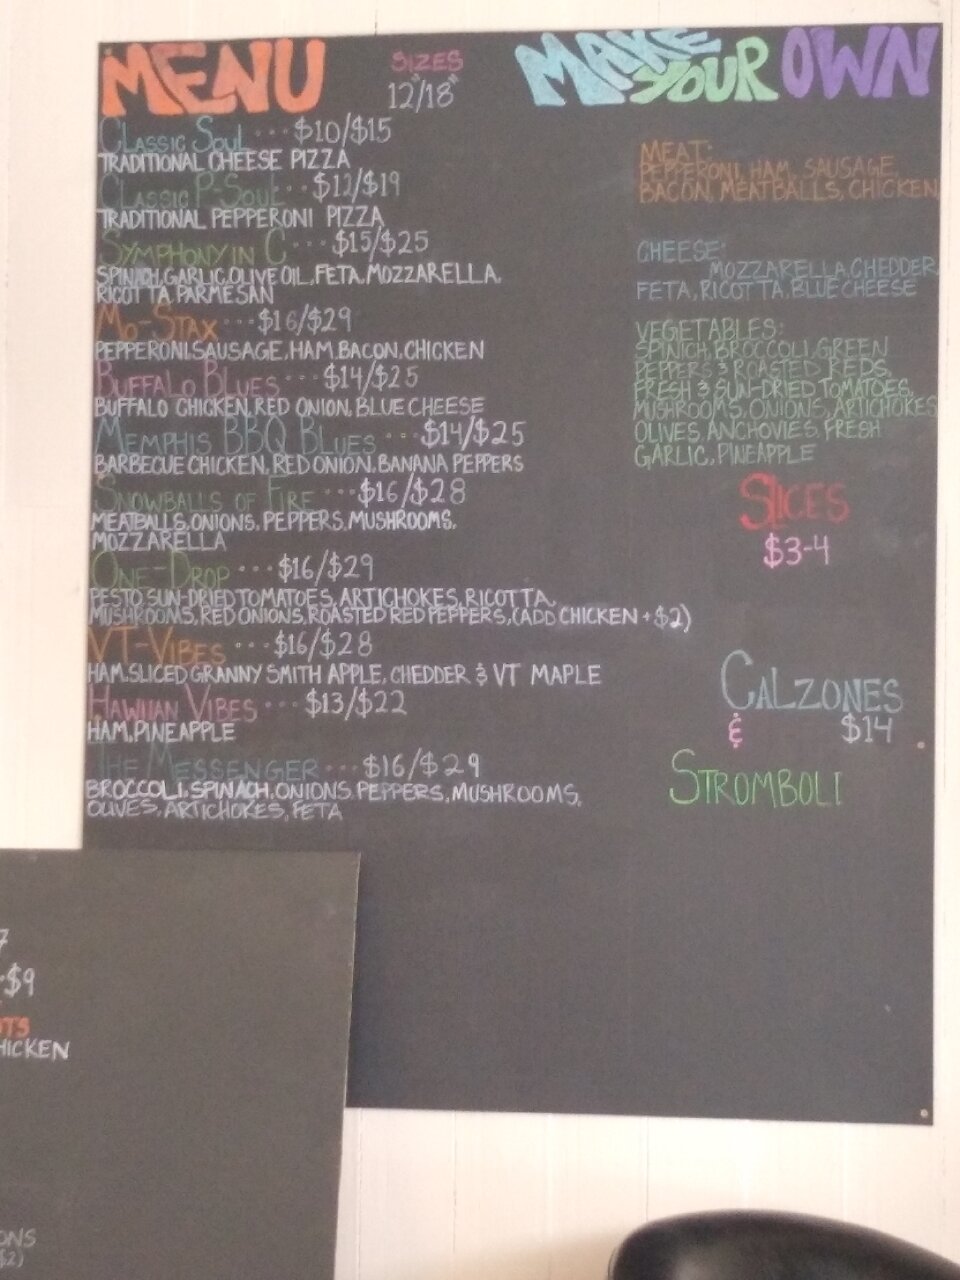 MENU
SIZES
12"/18"
CLASSIC SOUL ... $10/$15
TRADITIONAL CHEESE PIZZA
CLASSIC P-SOUL ... $12/$19
TRADITIONAL PEPPERONI PIZZA
SYMPHONY IN C ... $15/$25
SPINACH, GARLIC, OLIVE OIL, FETA, MOZZARELLA,
RICOTTA PARMESAN
MO-STAX ... $16/$29
PEPPERONI, SAUSAGE, HAM, BACON, CHICKEN
BUFFALO BLUES ... $14/$25
BUFFALO CHICKEN, RED ONION, BLUE CHEESE
MEMPHIS BBQ BLUES ... $14/$25
BARBECUE CHICKEN, RED ONION, BANANA PEPPERS
SNOWBALLS OF FIRE ... $16/$28
MEATBALLS, ONIONS, PEPPERS, MUSHROOMS,
MOZZARELLA
ONE-DROP ... $16/$29
PESTO, SUN-DRIED TOMATOES, ARTICHOKES, RICOTTA,
MUSHROOMS, RED ONIONS, ROASTED RED PEPPERS, (ADD CHICKEN + $2)
VT-VIBES ... $16/$28
HAM, SLICED GRANNY SMITH APPLE, CHEDDER & VT MAPLE
HAWIIAN VIBES ... $13/$22
HAM, PINEAPPLE
THE MESSENGER ... $16/$29
BROCCOLI, SPINACH, ONIONS, PEPPERS, MUSHROOMS,
OLIVES, ARTICHOKES, FETA
MAKE YOUR OWN
MEAT:
PEPPERONI, HAM, SAUSAGE,
BACON, MEATBALLS, CHICKEN
CHEESE:
MOZZARELLA, CHEDDER,
FETA, RICOTTA, BLUE CHEESE
VEGETABLES:
SPINICH, BROCCOLI, GREEN
PEPPERS & ROASTED REDS,
FRESH & SUN-DRIED TOMATOES,
MUSHROOMS, ONIONS, ARTICHOKES
OLIVES, ANCHOVIES, FRESH
GARLIC, PINEAPPLE
SLICES
$3-4
CALZONES
& $14
STROMBOLI
7
$9
HICKEN
ONS
$2)